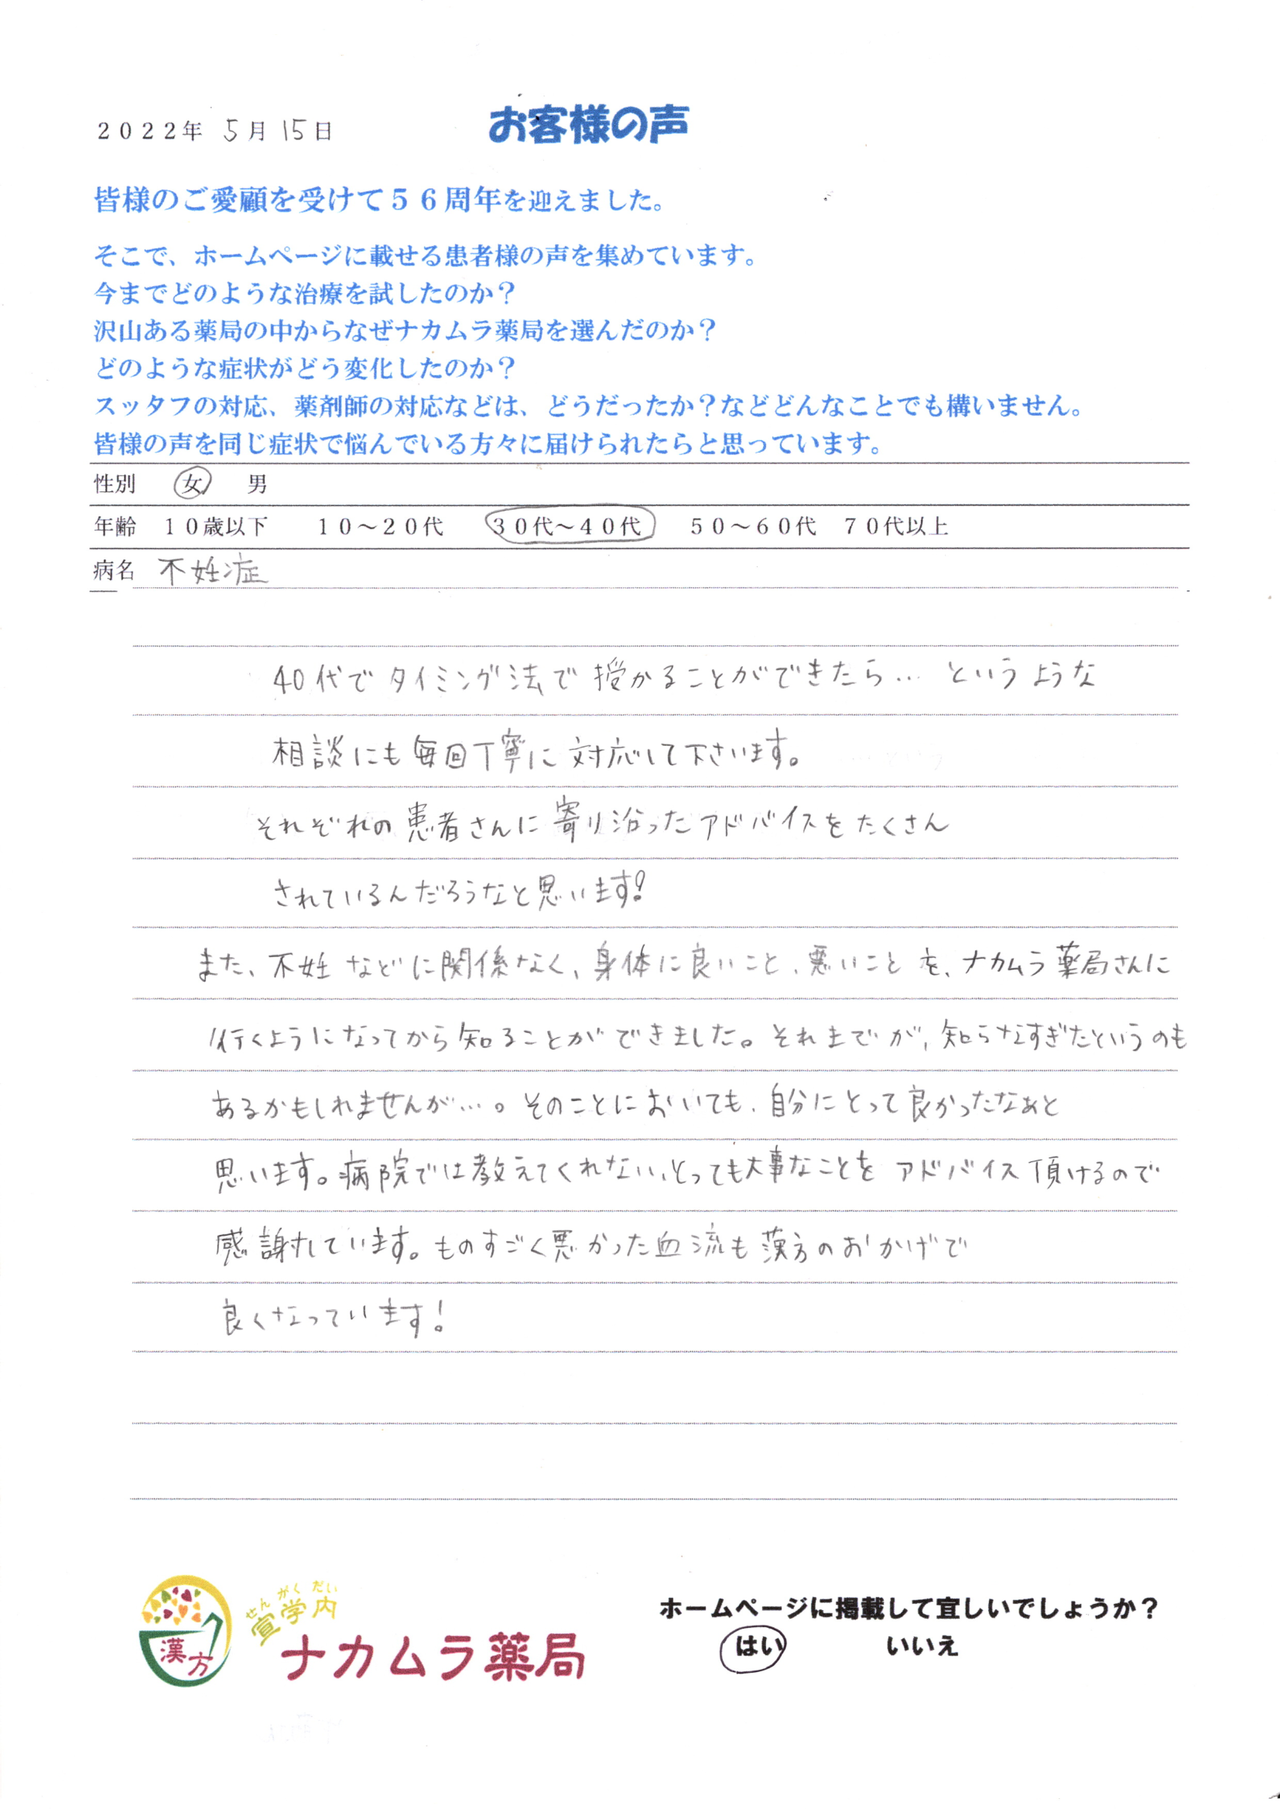 2022年 5月 15日
お客様の声
皆様のご愛顧を受けて56周年を迎えました。
そこで、ホームページに載せる患者様の声を集めています。
今までどのような治療を試したのか？
沢山ある薬局の中からなぜナカムラ薬局を選んだのか？
どのような症状がどう変化したのか？
スッタフの対応、薬剤師の対応などは、どうだったか？などどんなことでも構いません。
皆様の声を同じ症状で悩んでいる方々に届けられたらと思っています。
性別 女 男
年齢 10歳以下 10～20代 30代～40代 50～60代 70代以上
病名 不妊症
40代でタイミング法で授かることができたら… というような
相談にも毎回丁寧に対応して下さいます。
それぞれの患者さんに寄り沿ったアドバイスをたくさん
されているんだろうなと思います!
また、不妊などに関係なく、身体に良いこと、悪いことを、ナカムラ薬局さんに
行くようになってから知ることができました。それまでが、知らなすぎたというのも
あるかもしれませんが…。そのことにおいても、自分にとって良かったなぁと
思います。病院では教えてくれない、とっても大事なことをアドバイス頂けるので
感謝しています。ものすごく悪かった血流も漢方のおかげで
良くなっています!
漢方
せんがくだい
宣学内
ナカムラ薬局
ホームページに掲載して宜しいでしょうか？
はい いいえ